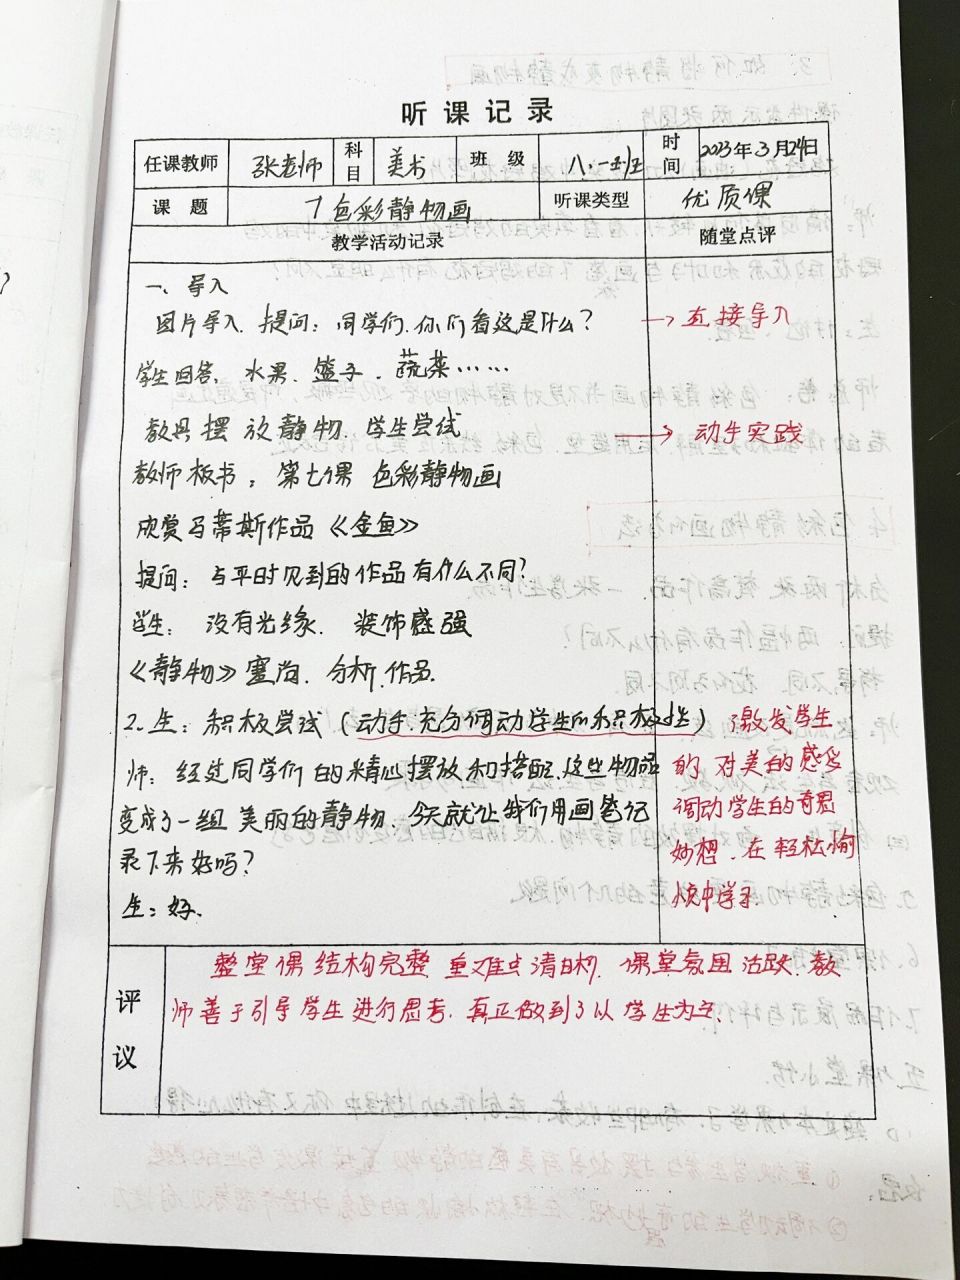 听课记录
任课教师 张老师 科目 美术 班级 八.一班 时间 2023年3月24日
课题 7 色彩静物画 听课类型 优质课
教学活动记录 随堂点评
一、导入
图片导入. 提问: 同学们. 你们看这是什么? → 直接导入
学生回答, 水果. 篮子. 蔬菜……
教具摆放静物. 学生尝试 → 动手实践
教师板书: 第七课 色彩静物画
欣赏马蒂斯作品《金鱼》
提问: 与平时见到的作品有什么不同?
学生: 没有光缘. 装饰感强
《静物》塞尚. 分析.作品.
2. 生: 积极尝试 (动手.充分调动学生的积极性) 激发学生
师: 经过同学们的精心摆放和搭配.这些物品 的.对美的感受
变成了一组美丽的静物. 今天就让我们用画笔记 调动学生的奇思
录下来好吗? 妙想.在轻松愉
生: 好. 快中学习.
评议
整堂课结构完整 重难点清晰. 课堂氛围活跃.教
师善于引导学生进行思考.真正做到了以学生为主.